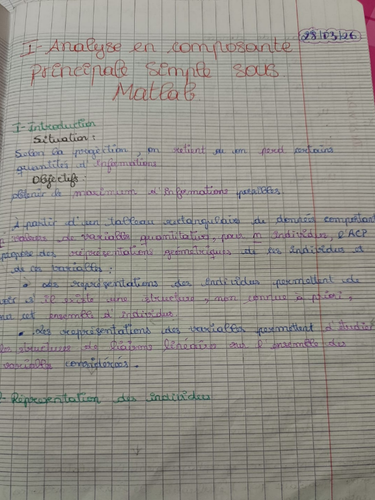 28/03/26
I- Analyse en composante
principale simple sous
Matlab
I- Introduction
Situation :
Selon la projection, on retient ou on perd certains
quantités d'informations
Objectifs :
obtenir le maximum d'informations possibles.
à partir d'un tableau rectangulaire de données comportant
valeurs de variables quantitatives, pour n individus, l'ACP
des représentations géométriques de ces individus et
de ces variables :
• ces représentations des individus permettent de
s'il existe une structure, non connue à priori,
cet ensemble d'individus.
• ces représentations des variables permettent d'étudier
structure de liaisons linéaires sur l'ensemble des
variables considérées.
Représentation des individus